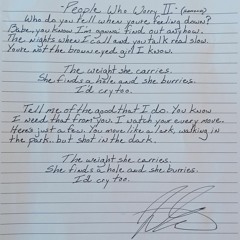 -"People Who Worry II"-
Who do you tell when you're feeling down?
Babe, you know I'm gonna' find out anyhow.
The nights when I call and you talk real slow.
You're not the brown eyed girl I know.
The weight she carries.
She finds a hole and she burries.
I'd cry too.
Tell me of the good that I do. You know
I need that from you. I watch your every move.
Here's just a few. You move like a lark, walking in
the park.. but shot in the dark.
The weight she carries.
She finds a hole and she burries.
I'd cry too.